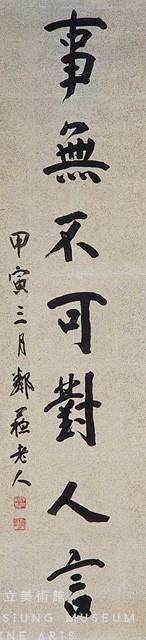 事無不可對人言
甲寅三月鄭蘇老人
立美術館
SIUNG MUSEUM
FINE ARTS